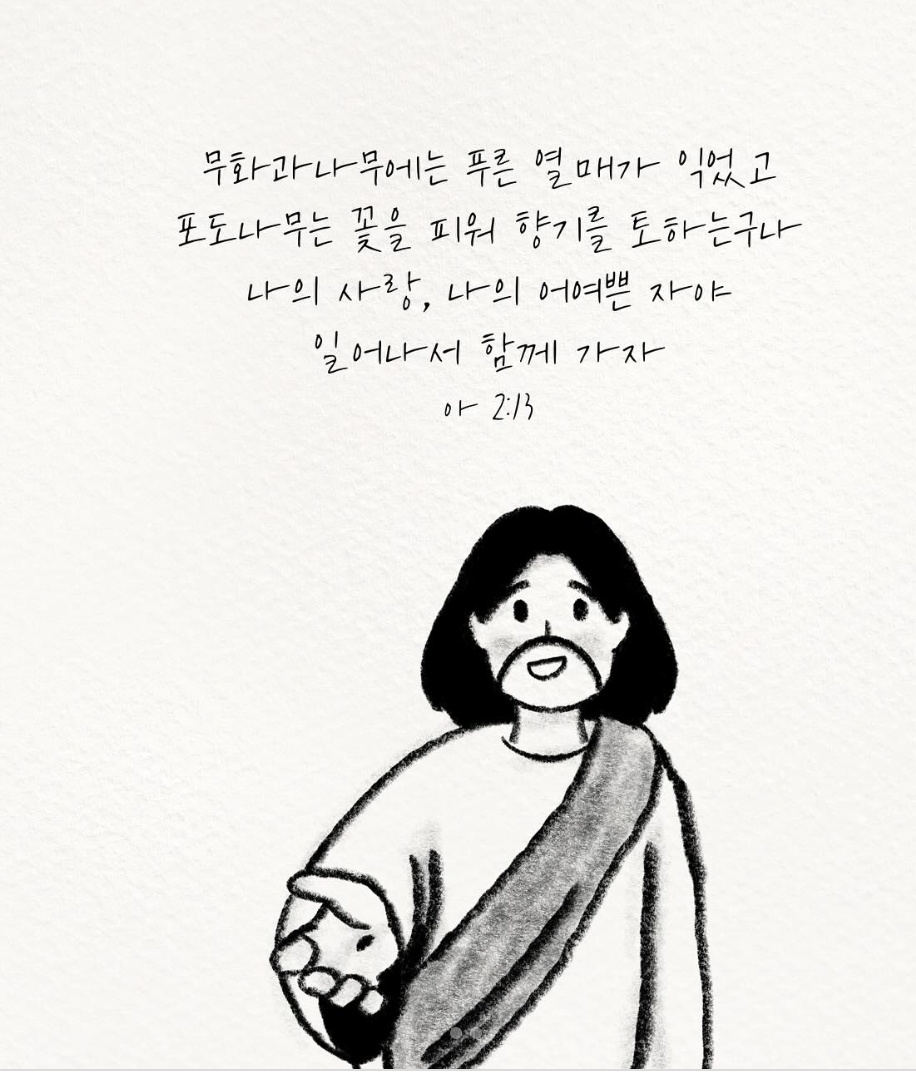 무화과나무에는 푸른 열매가 익었고
포도나무는 꽃을 피워 향기를 토하는구나
나의 사랑, 나의 어여쁜 자야
일어나서 함께 가자
아 2:13